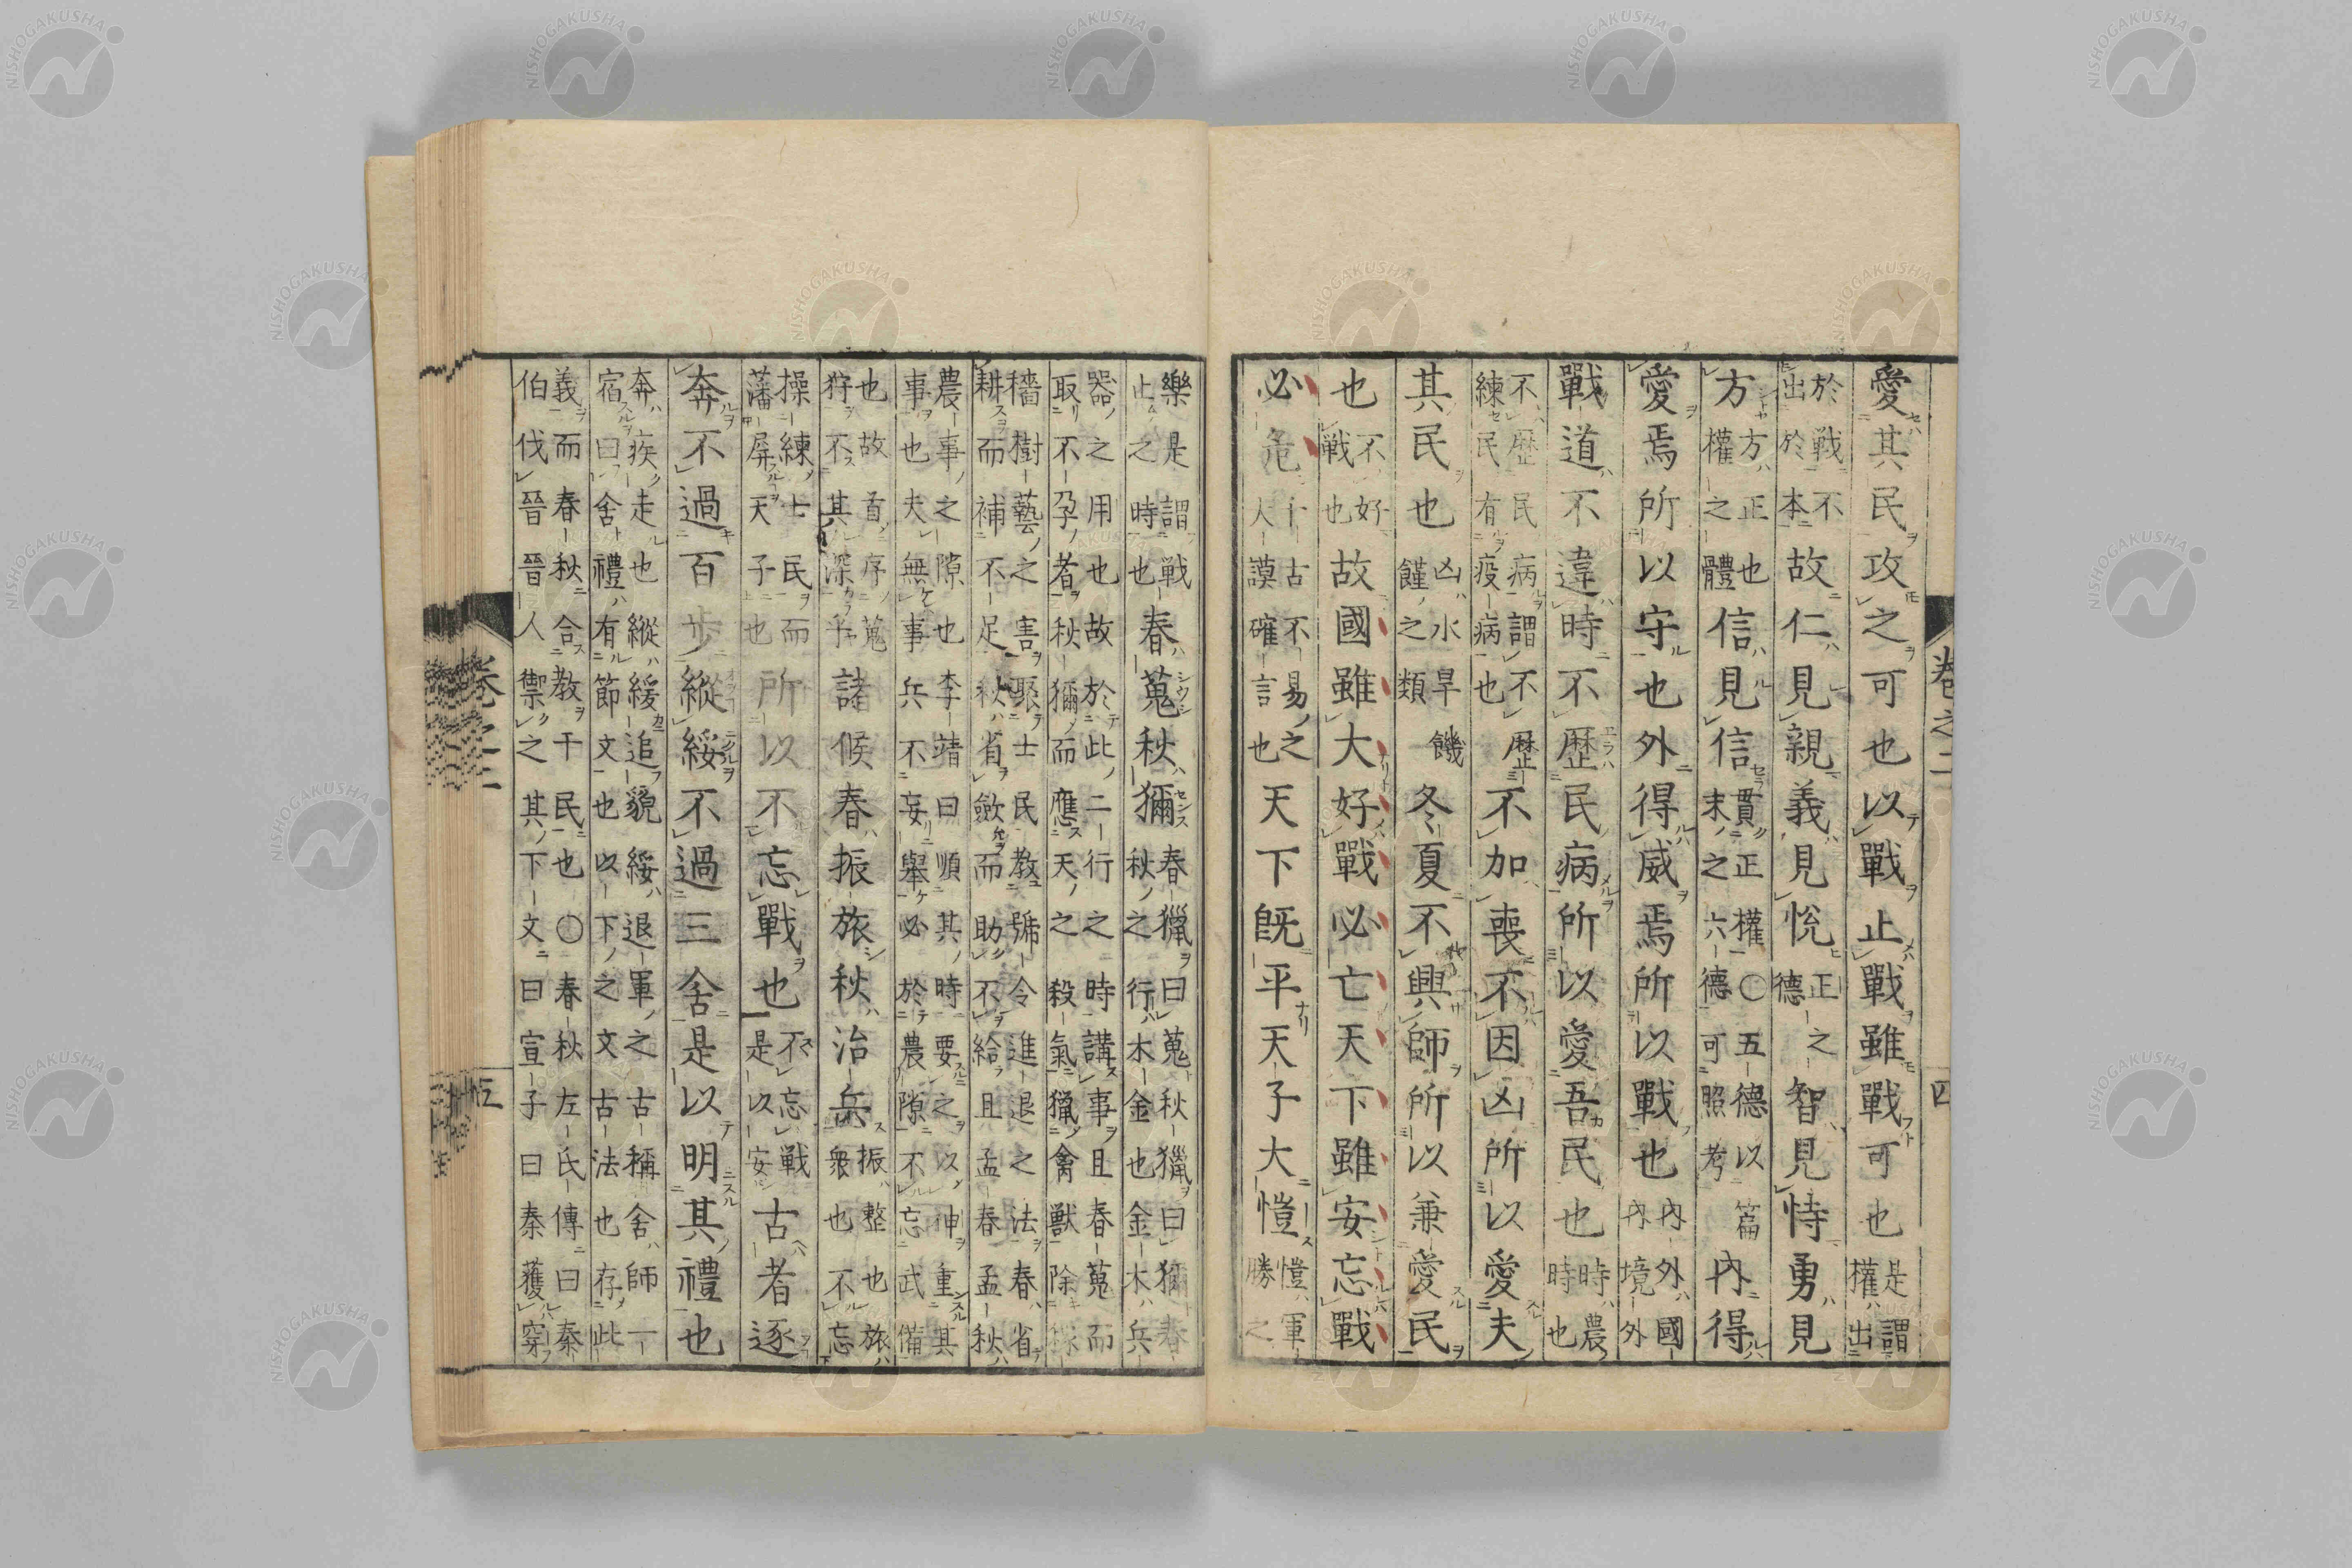 愛其民攻之可也以戰止戰雖戰可也是謂權出
於戰不出於本故仁見親義見悅正德之智見恃勇見
方方正也權之體信見信貫正權末之六德〇五德以可照考篇內得
愛焉所以守也外得威焉所以戰也內外國內境外
戰道不違時不歷民病所以愛吾民也時時農也
不歷民病謂不練民有疫病也不歷不加喪不因凶所以愛夫
其民也凶水旱饑饉之類冬夏不興師所以兼愛民
也不好戰也故國雖大好戰必亡天下雖安忘戰
必危千古不易之人謨確言也天下既平天子大愷愷軍之勝
卷之二
四
樂是謂戰止之時也春蒐秋獮春獵曰蒐秋獵曰獮春秋之行木金也金木兵
器之用也故於此二行之時講事且春蒐而取不孕者秋獮而應天之殺氣獵禽獸除
穡樹藝之害聚士民教號令進退之法春省耕而補不足秋省斂而助不給且孟春孟秋
農事之隙也李靖曰順其時要之以神重其事也夫無事兵不妄舉必於農隙不忘武備
也故首序蒐狩不其深乎諸侯春振旅秋治兵振整也旅衆也不忘
操練士民而藩屏天子也所以不忘戰也不忘戰是以安古者逐
奔不過百步縱綏不過三舍是以明其禮也
奔疾走也縱緩追貌綏退軍之古稱舍師一宿曰舍禮有節文也以下之文古法也存此
義而春秋合教干民也〇春秋左氏傳曰秦伯伐晉晉人禦之其下文曰宣子曰秦獲穿
卷之二
五